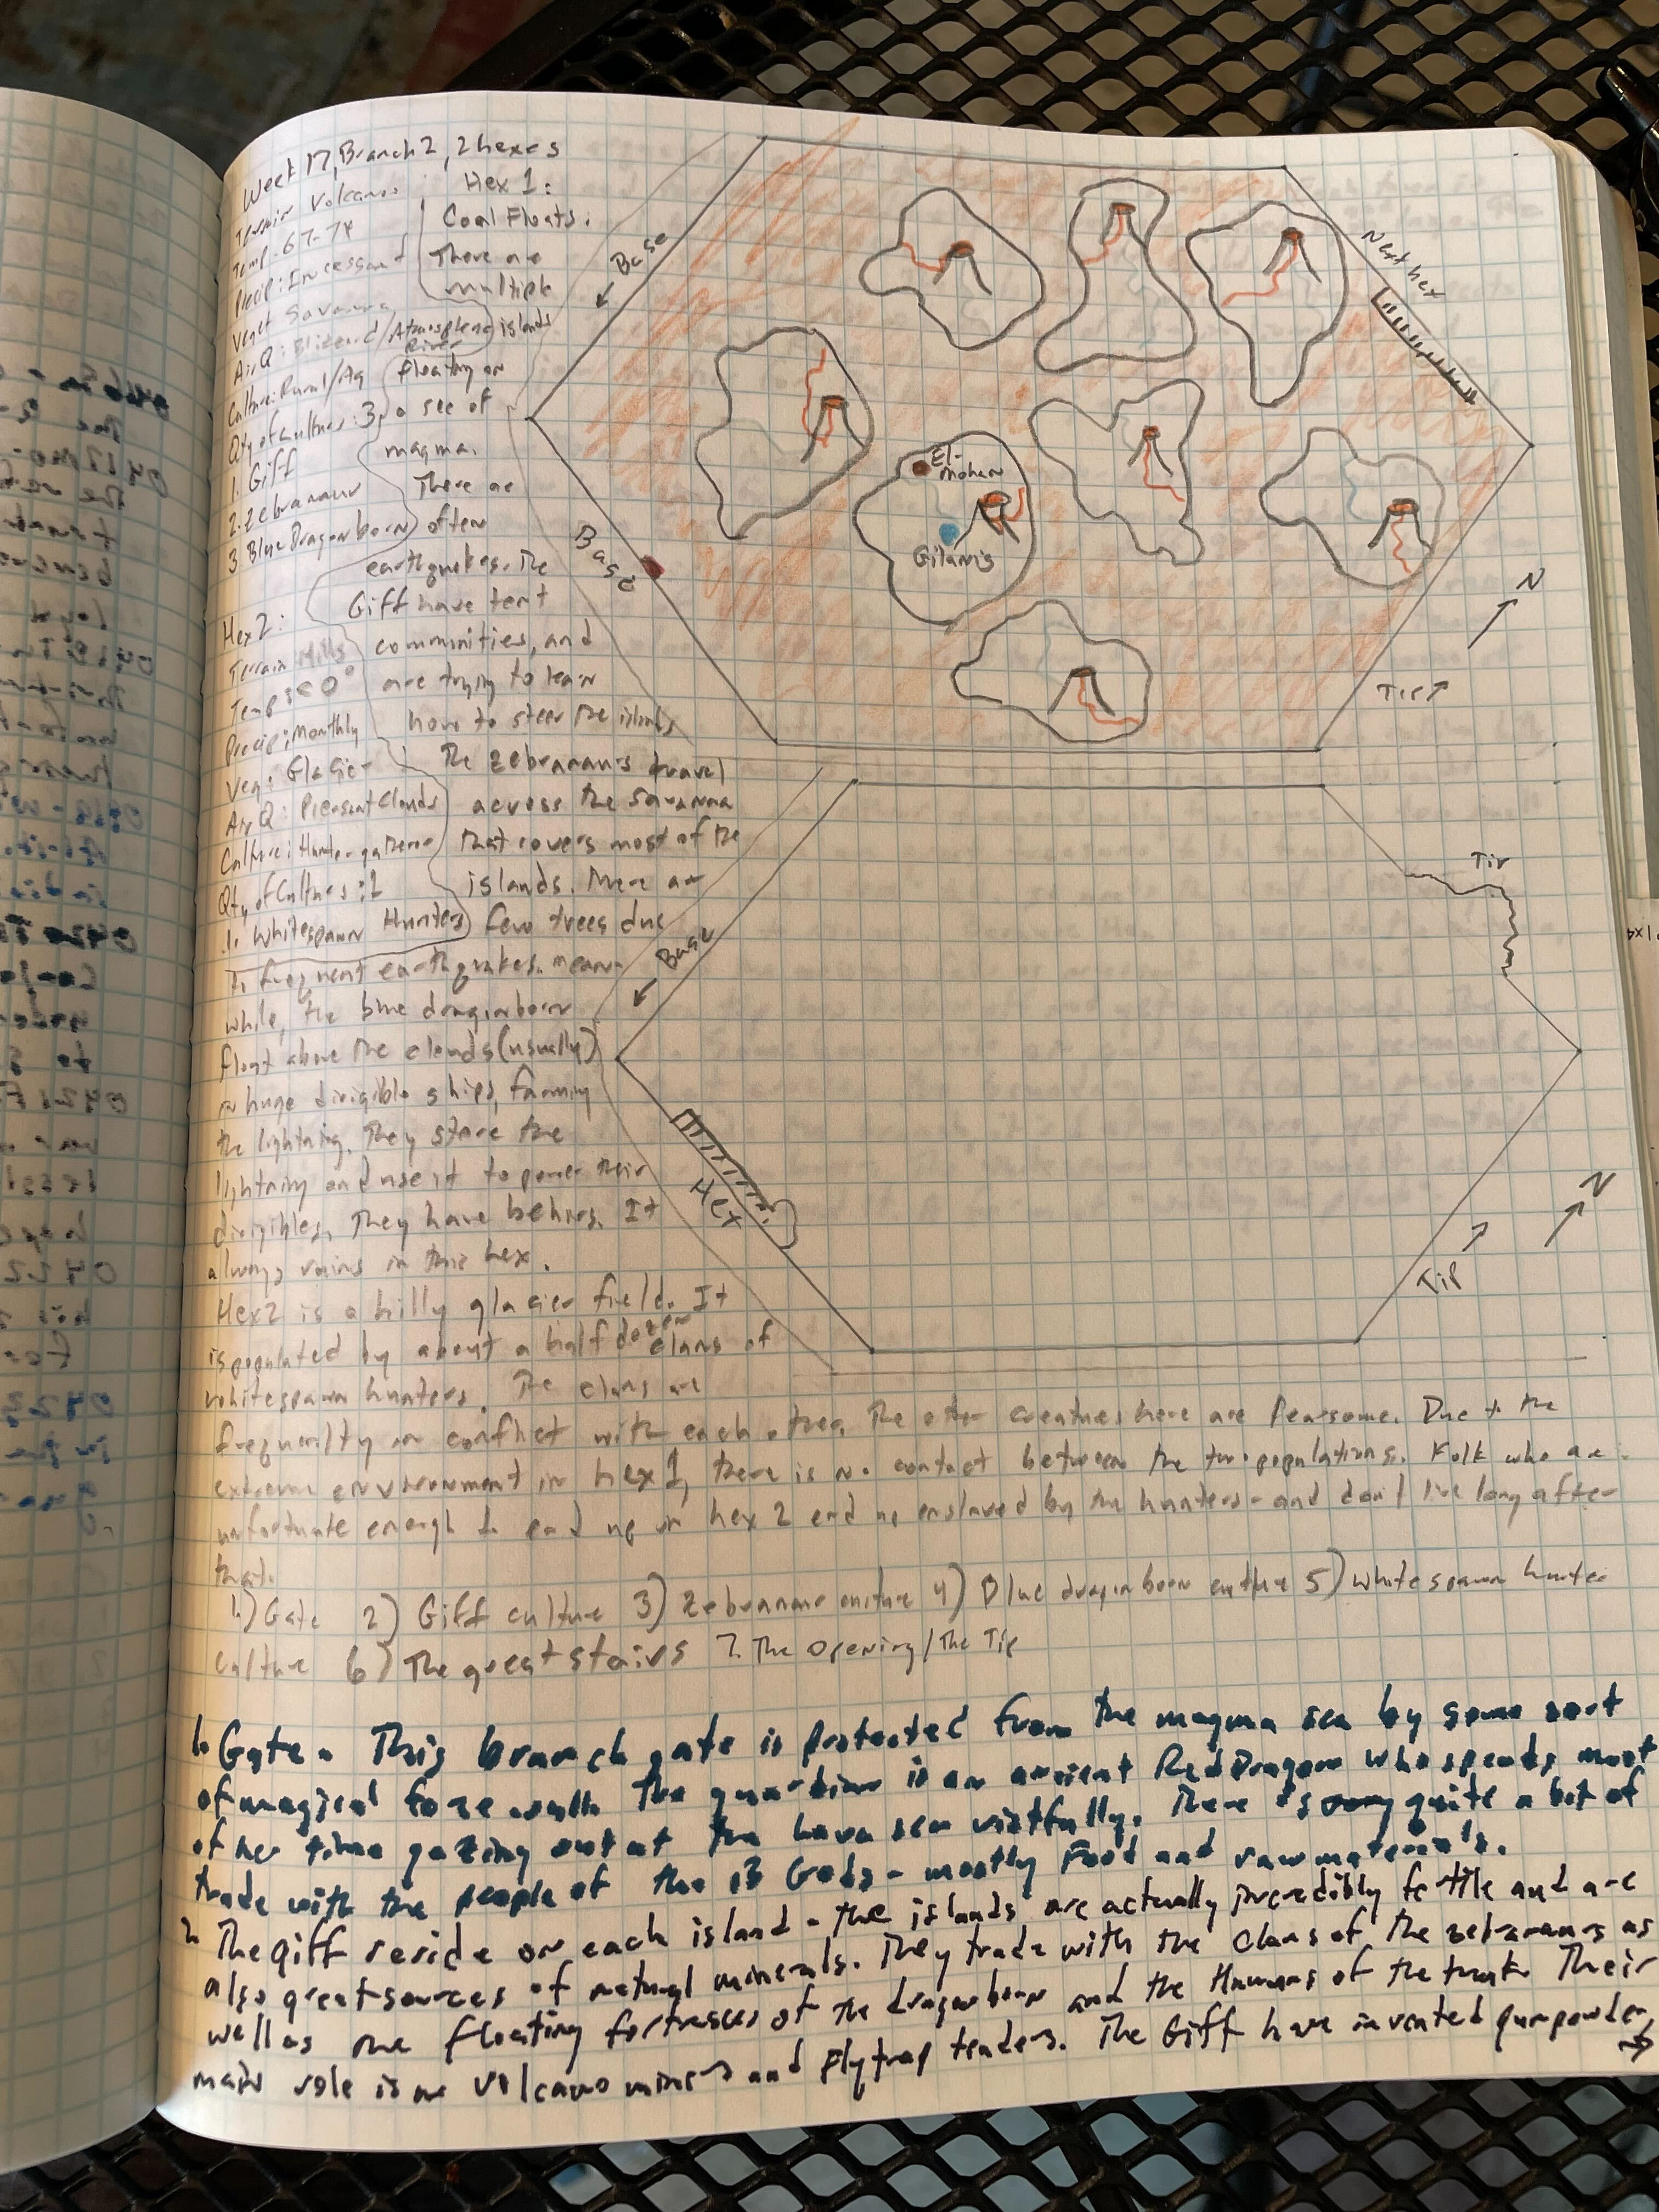 Week 17, Branch 2, 2 hexes
Terrain Volcanos
Temp. 67-74
Precip: Incessant
Veget Savanna
Air Q: Blizzard/Atmospheric River
Culture: Rural/Ag
Qty of Cultures: 3
1. Giff
2. Zebranaur
3 Blue Dragonborn
Hex 2:
Terrain Hills
Temp: < 0°
Precip: Monthly
Veg: Glacier
Air Q: Pleasant Clouds
Culture: Hunter-gatherer
Qty of Cultures: 1
1. Whitespawn Hunters
Hex 1:
Coal Floats.
There are
multiple
islands
floating on
a sea of
magma.
There are
often
earthquakes. The
Giff have tent
communities, and
are trying to learn
how to steer the islands
The zebranaurs travel
across the savanna
that covers most of the
islands. There are
few trees due
to frequent earthquakes. Mean-
while, the blue dragonborn
float above the clouds (usually)
in huge dirigible ships, farming
the lightning. They store the
lightning and use it to power their
dirigibles. They have behirs. It
always rains in this hex.
Hex 2 is a hilly glacier field. It
is populated by about a half dozen clans of
whitespawn hunters. The clans are
frequently in conflict with each other. The other creatures here are fearsome. Due to the
extreme environment in hex 1, there is no contact between the two populations. Folk who are
unfortunate enough to end up in hex 2 end up enslaved by the hunters - and don't live long after
that.
1.) Gate 2) Giff culture 3) Zebranaur culture 4) Blue dragonborn culture 5) Whitespawn hunter
culture 6) The great stairs 7. The Opening/The Tip
1. Gate. This branch gate is protected from the magma sea by some sort
of magical force wall. The guardian is an ancient Red Dragon who spends most
of her time gazing out at the lava sea wistfully. There is quite a bit of
trade with the people of the 13 Gods - mostly Food and raw materials.
2. The giff reside on each island - the islands are actually incredibly fertile and are
also great sources of natural minerals. They trade with the clans of the zebranaurs as
well as the floating fortresses of the dragonborn and the Humans of the trunk. Their
main role is as volcano miners and flytrap tenders. The Giff have invented gunpowder,
→
Base
Next hex
El-Mohan
Gilanis
Base
N
Tip
Tip
Base
Hex
N
Tip